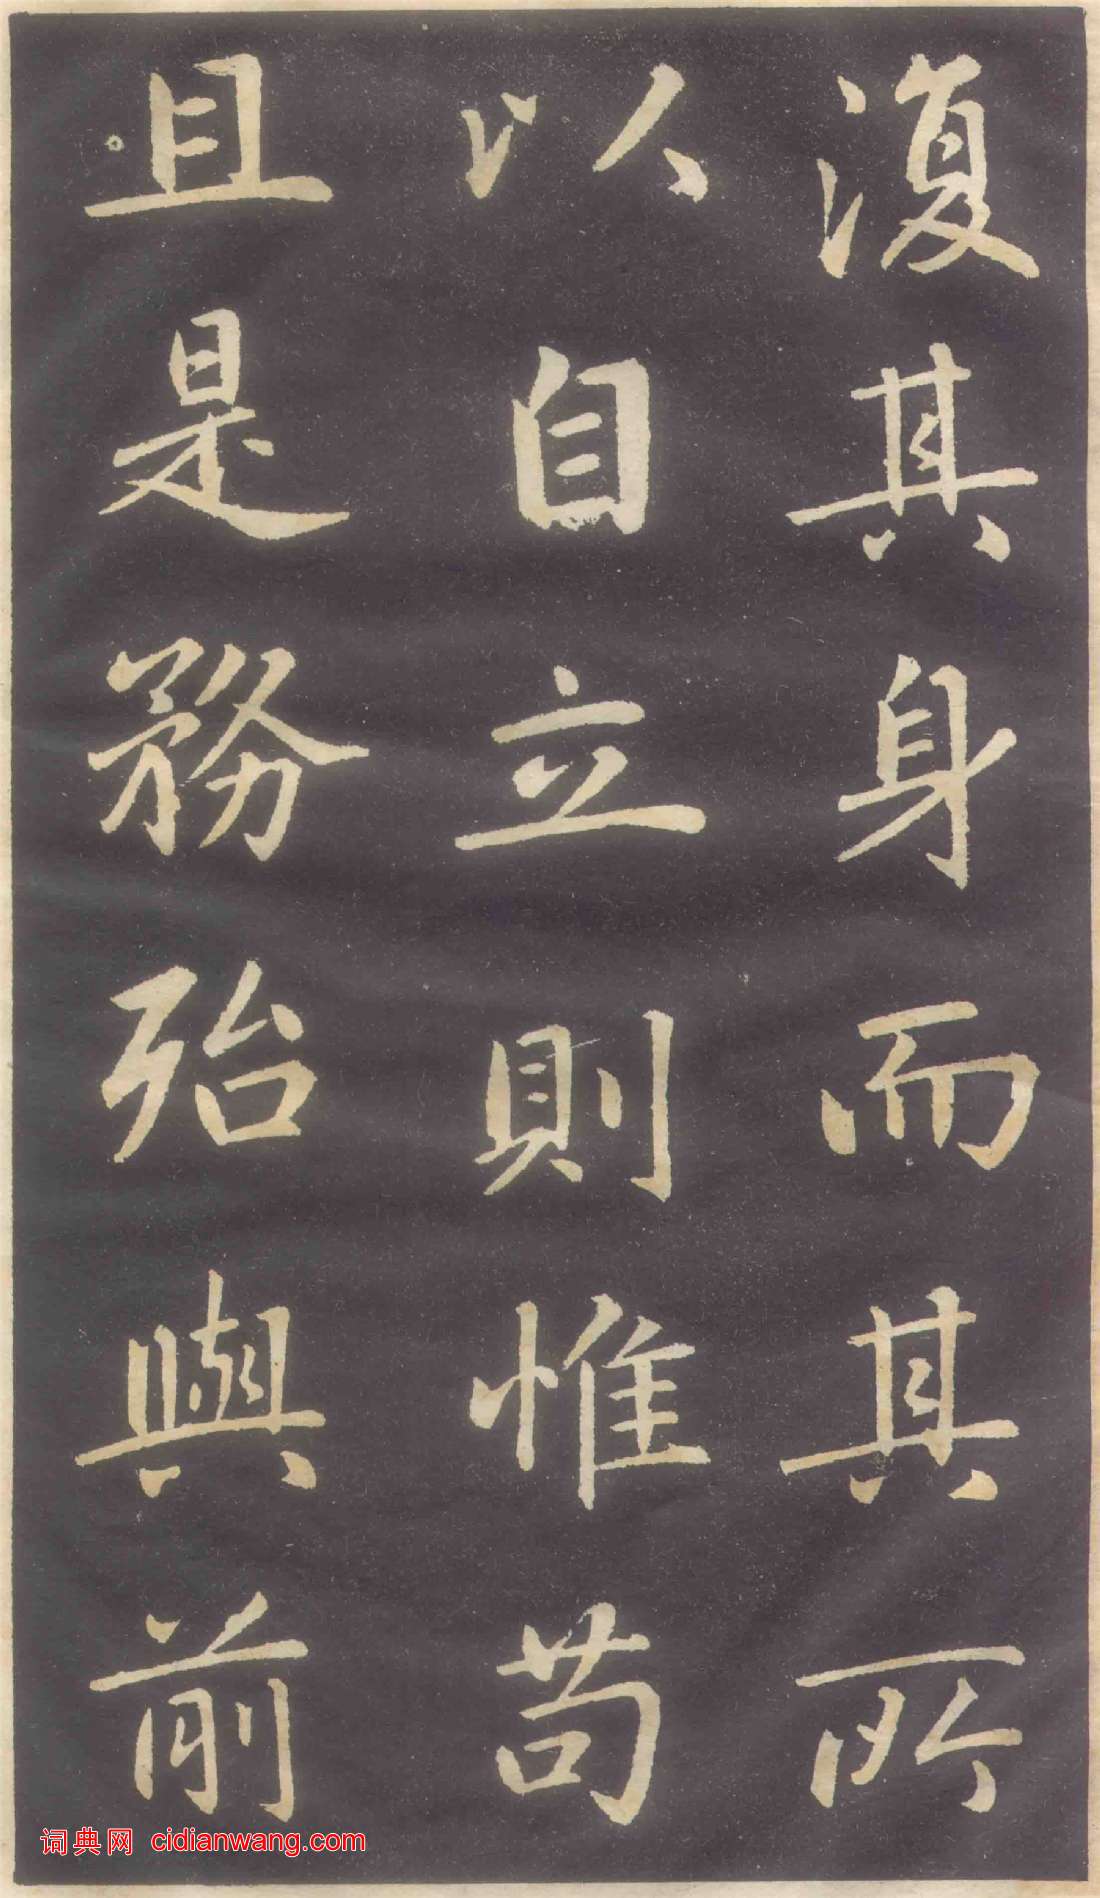 没其身而其所
以自立則惟苟
且是務殆與前
词典网 cidianwang.com